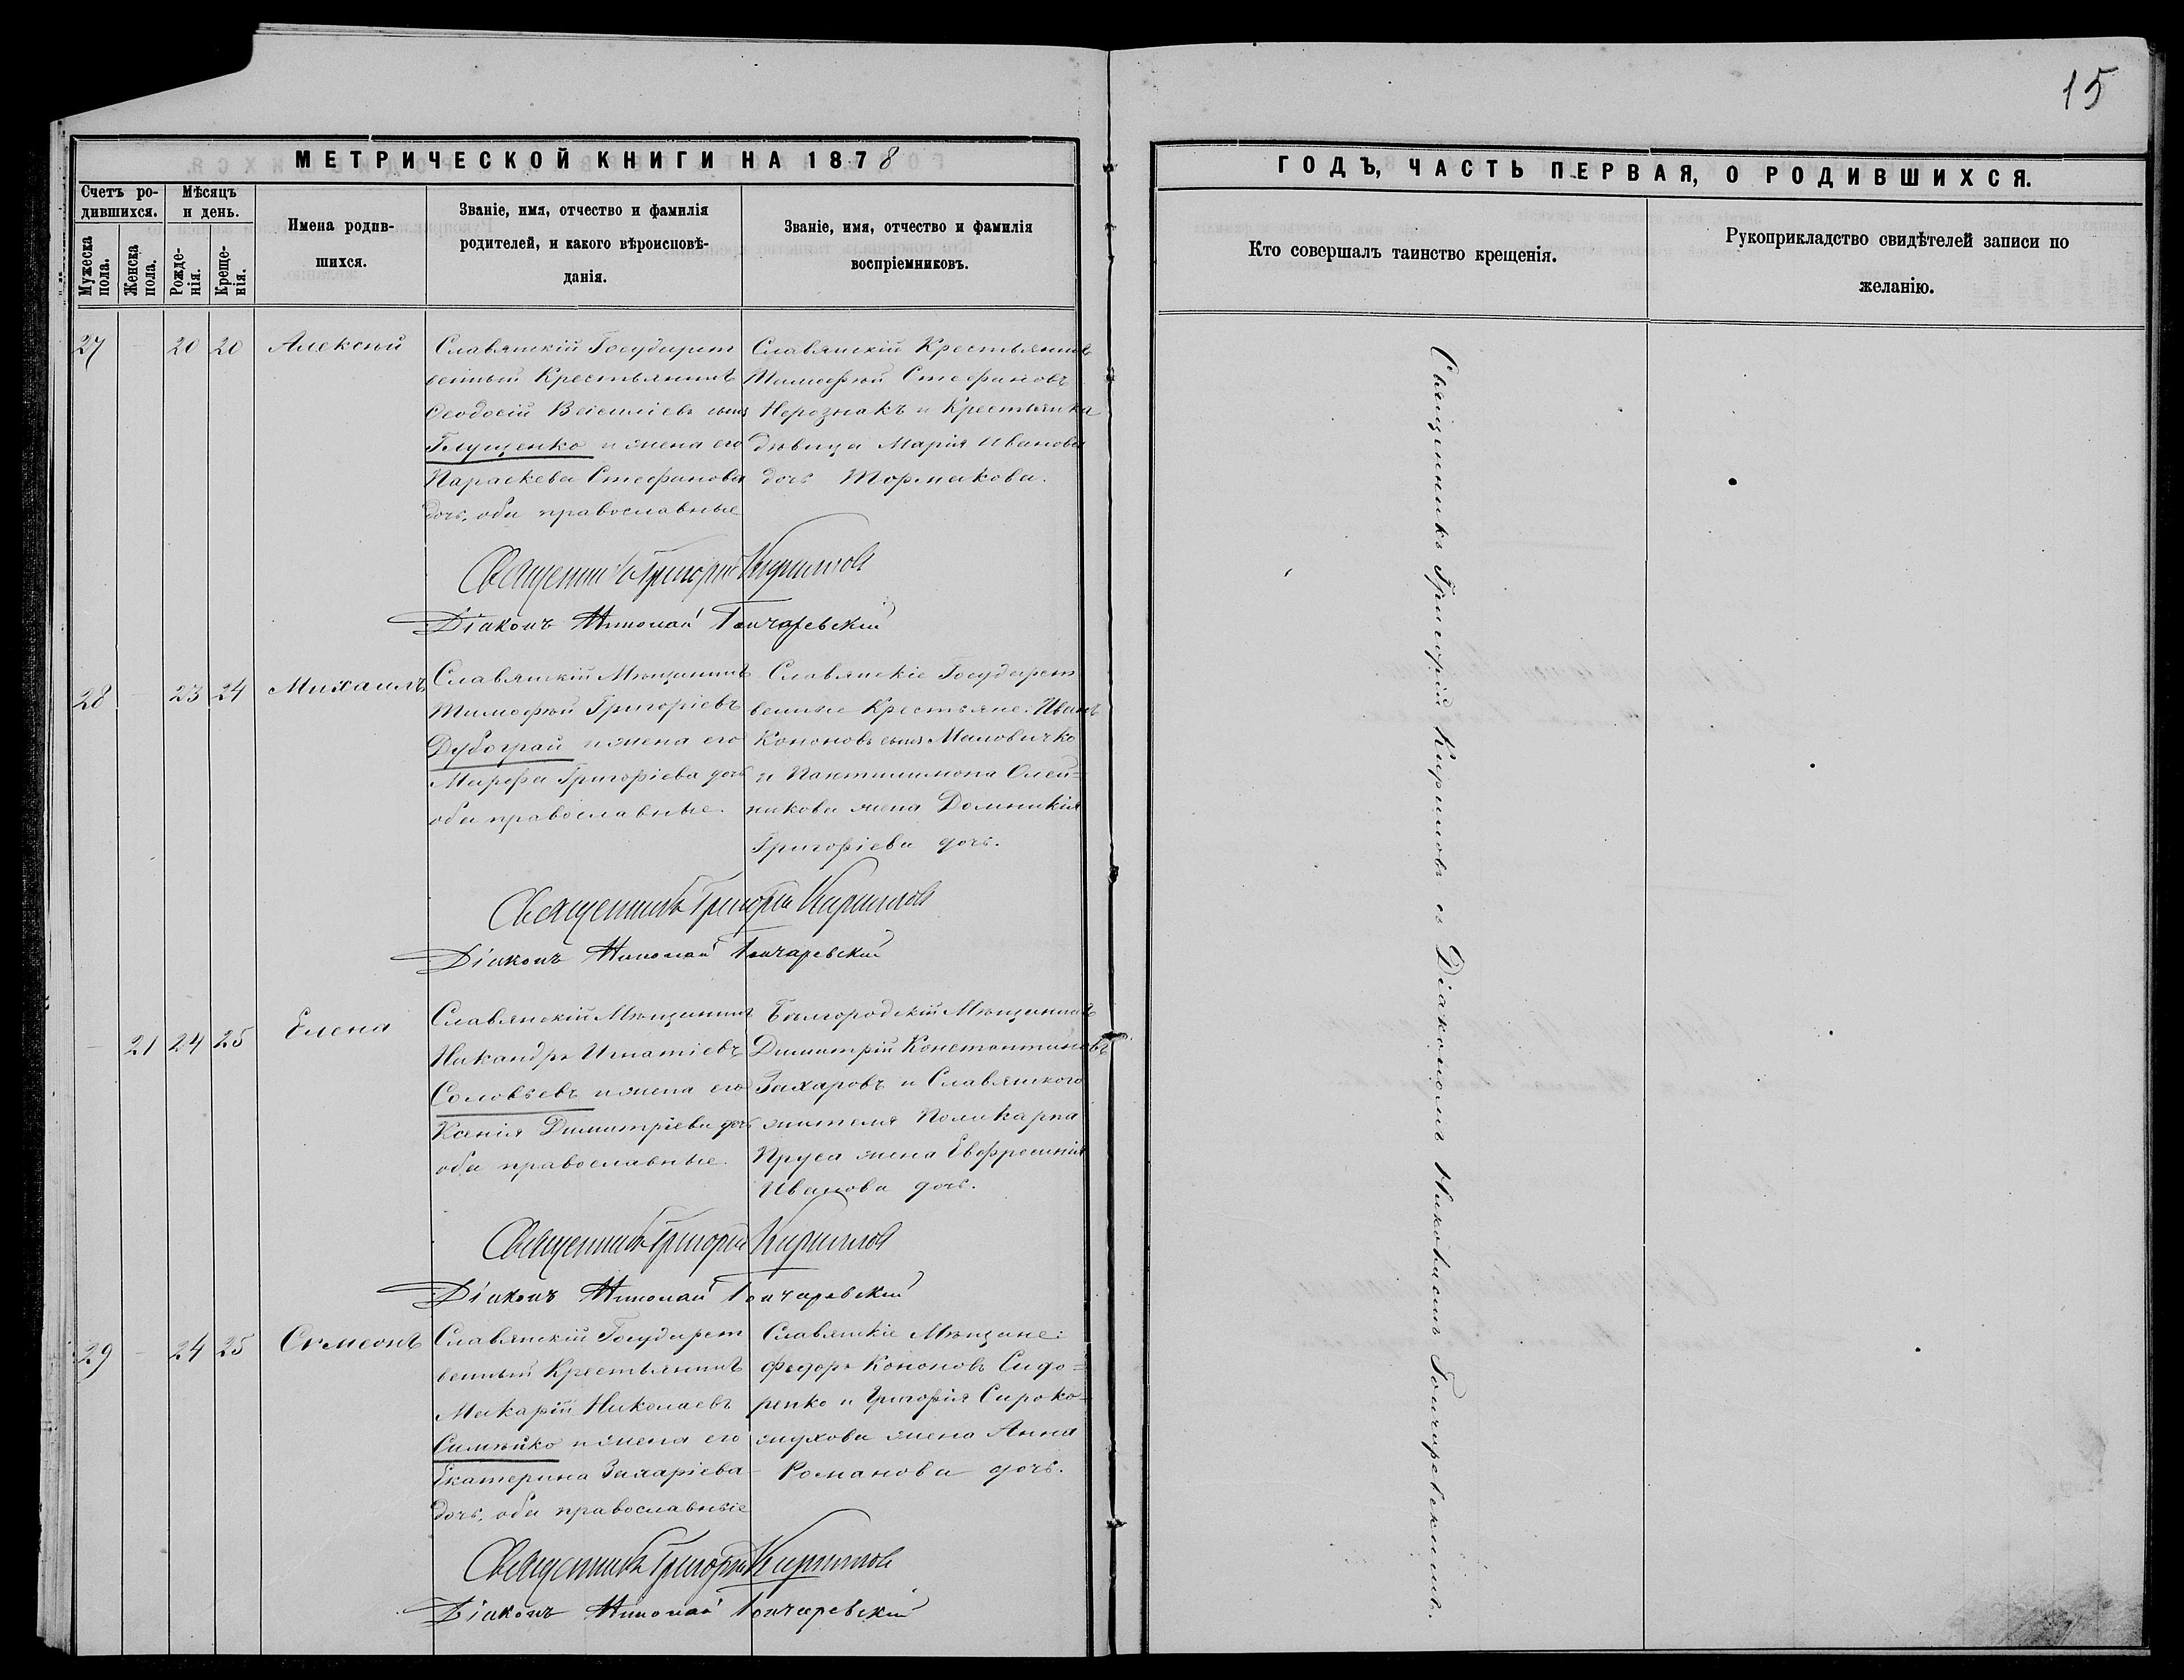 15
МЕТРИЧЕСКОЙ КНИГИ НА 1878
ГОДЪ, ЧАСТЬ ПЕРВАЯ, О РОДИВШИХСЯ.
Счетъ ро-
дившихся.
Мѣсяцъ
и день.
Мужеска
пола.
Женска
пола.
Рожде-
нія.
Креще-
нія.
Имена родив-
шихся.
Званіе, имя, отчество и фамилія
родителей, и какого вѣроисповѣ-
данія.
Званіе, имя, отчество и фамилія
воспріемниковъ.
Кто совершалъ таинство крещенія.
Рукоприкладство свидѣтелей записи по
желанію.
27 20 20 Алексѣй
Славянскій Государст
венный Крестьянинъ
Ѳеодосій сынъ
Глущенко и жена его
Параскева Стефанова
дочь, оба православные
Славянскій Крестьянинъ
Тимофѣй Стефановъ
Нерознакъ и Крестьянка
дѣвица Марія Иванова
дочь Тормакова.
Священникъ Григорій Кириловъ
Діаконъ Николай Гончаревскій
28 23 24 Михаилъ
Славянскій Мѣщанинъ
Тимофѣй Григоріевъ
Дубограй и жена его
Марфа Григоріева дочь
оба православные.
Славянскіе Государст
венные Крестьяне: Иванъ
Кононовъ сынъ Маловичко
и Пантилимона Олей=
никова жена Домникія
Григоріева дочь.
Священникъ Григорій Кириловъ
Діаконъ Николай Гончаревскій
21 24 25 Елена
Славянскій Мѣщанинъ
Никандръ Игнатіевъ
Соловьевъ и жена его
Ксенія Димитріева дочь
оба православные.
Бѣлгородскій Мѣщанинъ
Димитрій Константиновъ
Захаровъ и Славянского
жителя Поликарпа
Пруса жена Евфросинія
Иванова дочь.
Священникъ Григорій Кириловъ
Діаконъ Николай Гончаревскій
29 24 25 Семеонъ
Славянскій Государст
венный Крестьянинъ
Макарій Николаевъ
Симѣйко и жена его
Екатерина Захаріева
дочь, оба православные
Славянскіе Мѣщане:
Федоръ Кононовъ Сидо=
ренко и Григорія Сироко-
мухова жена Анна
Романова дочь.
Священникъ Григорій Кириловъ
Діаконъ Николай Гончаревскій
Священникъ Григорій Кириловъ съ Діакономъ Николаемъ Гончаревскимъ.